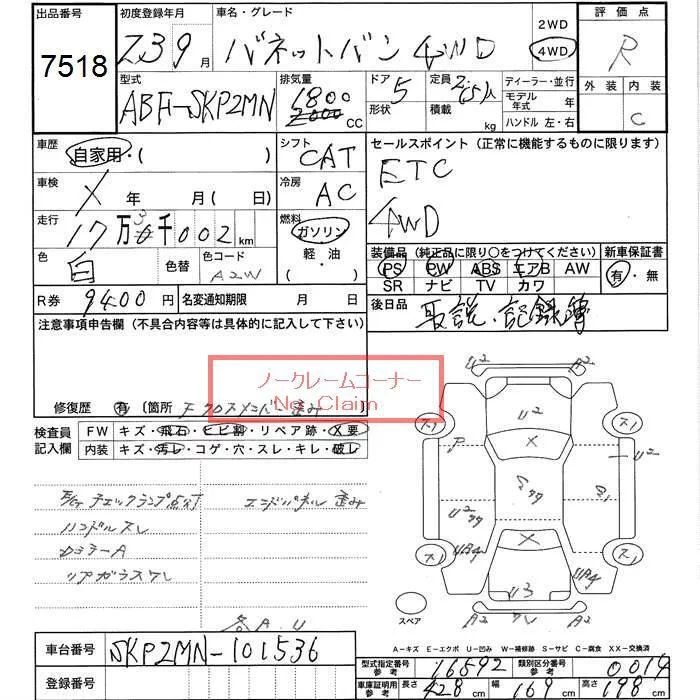 出品番号 初度登録年月 車名・グレード 2WD 評価点
7518 Z3 9月 バネットバン 4WD 4WD R
型式 排気量 ドア 定員 ディーラー・並行 外装 内装
ABF-SKP2MN 1800 CC 5 形状 積載 kg モデル年式 年 C
ハンドル 左・右
車歴 自家用・( ) シフト CAT セールスポイント (正常に機能するものに限ります)
車検 X 年 月(日) 冷房 AC ETC
走行 17万3千002km 燃料 ガソリン 4WD
軽・油 装備品 (純正品に限り○をつけてください) 新車保証書
色 白 色替 色コード A2W PS PW ABS エアB AW 有・無
SR ナビ TV カワ
R券 9400円 名変通知期限 月 日 後日品 取説・記録簿
注意事項申告欄 (不具合内容等は具体的に記入して下さい)
ノークレームコーナー
No Claim
修復歴 有 〔箇所 Fクロスメンバー歪み 〕
検査員 FW キズ・飛石・ヒビ割・リペア跡・X要
記入欄 内装 キズ・汚レ・コゲ・穴・スレ・キレ・破レ
チェックランプ点灯 エンドパネル歪み
ハンドルスレ
カラーA
リアガラスワレ
各A.U
U2 A2
ス1 U2 ス1
P X U2
U2
ス1 X ス1
UP4 UP4
U3
スペア A2 A2
A-キズ E-エクボ U-凹み W-補修跡 S-サビ C-腐食 XX-交換済
車台番号 SKP2MN-101536
型式指定番号 参考 16592 類別区分番号 参考 0014
登録番号 車庫証明用 参考 長さ 428cm 幅 169cm 高さ 198cm